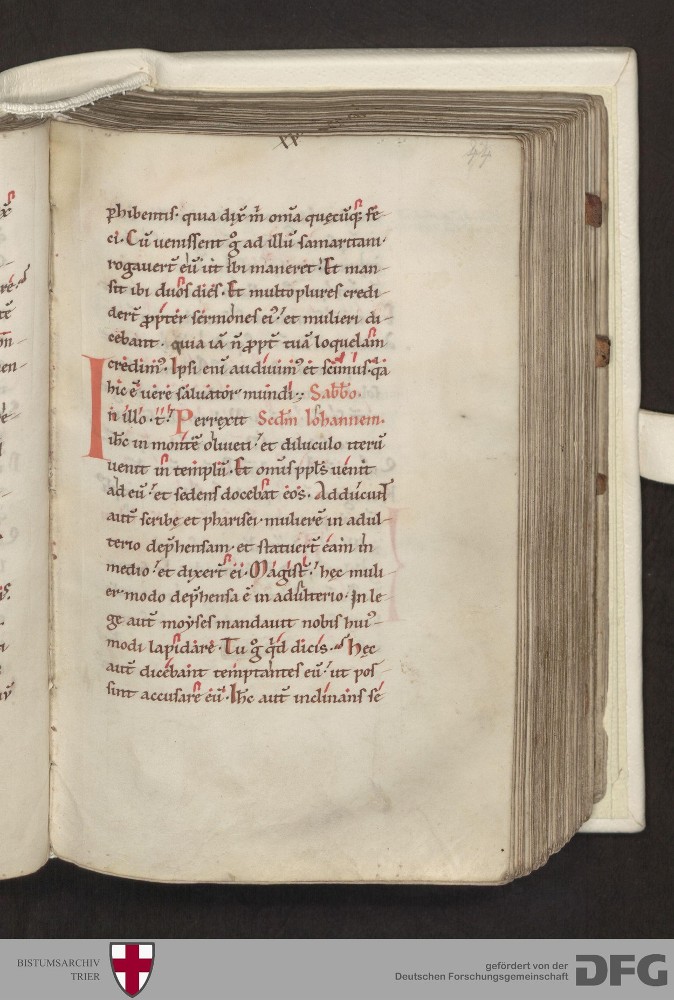 XV
44
p̱hibentis· quia dix̄ m̄ om̄a quęcūq; fe-
ci· Cū venissent g̊ ad illū samaritani·
rogaverт̄ eū ut ibi maneret· Et man-
sit ibi duos dies· Et multo plures credi-
derт̄ ꝓpter sermones ei᾿· et mulieri di-
cebant· quia iā n̄ ꝓpt̄ tuā loquelam
credim᾿· Ipsi eni audivim᾿ et scimus· q̄a
hic ē vere salvator mundi· Sabb̄o.
In illo· t̄· Perrexit Scd̄m Ioh̄annem.
ih̄c in montē oliveti· et diluculo iterū
venit in templū· Et om̄is ppl̄s venit
ad eū· et sedens docebat eos· Adducunт̄
aut̄ scribę et pharisei· mulierē in adul-
terio dep̄hensam· et statuerт̄ eam in
medio· et dixerт̄ ei· Magist̄· hęc muli-
er modo dep̄hensa ē in adulterio· In le-
ge aut̄ moyses mandavit nobis hui᾿-
modi lapidare· Tu g̊ q̇d dicis· Hęc
aut̄ dicebant temptantes eū· ut pos-
sint accusare eū· Ih̄c aut̄ inclinans se
BISTUMSARCHIV
TRIER
gefördert von der
Deutschen Forschungsgemeinschaft
DFG